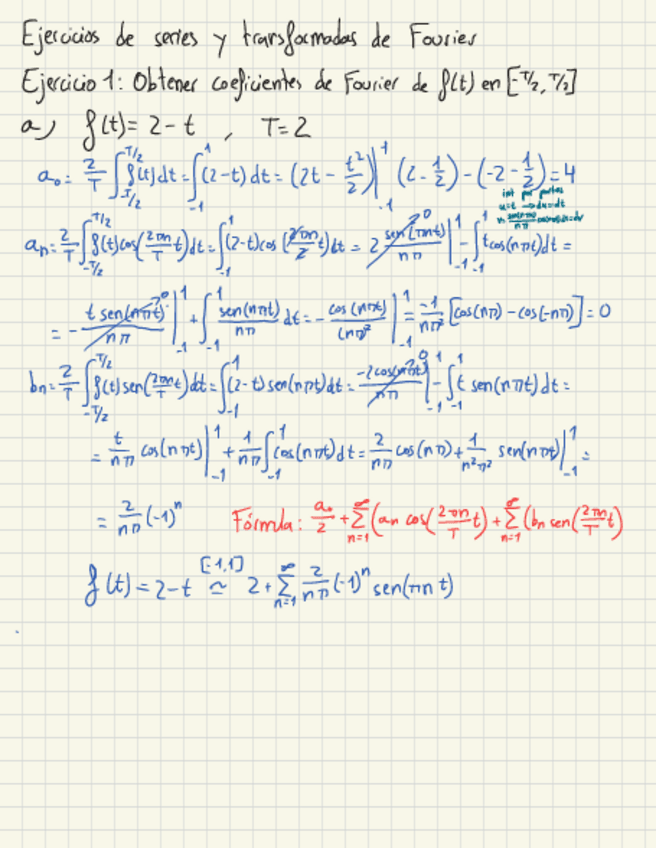 Ejercicios de series y transformadas de Fourier
Ejercicio 1: Obtener coeficientes de Fourier de f(t) en [-T/2, T/2]
a) f(t) = 2 - t , T = 2
a₀ = 2/T ∫_{-T/2}^{T/2} f(t) dt = ∫_{-1}^{1} (2-t) dt = (2t - t²/2)|_{-1}^{1} (2 - 1/2) - (-2 - 1/2) = 4
int por partes
u=t → du=dt
an = 2/T ∫_{-T/2}^{T/2} f(t) cos(2πn/T t) dt = ∫_{-1}^{1} (2-t) cos(2πn/2 t) dt = 2 sen(πnt)/nπ |_{-1}^{1} - ∫_{-1}^{1} t cos(nπt) dt =
= - t sen(nπt)/nπ |_{-1}^{1} + ∫_{-1}^{1} sen(nπt)/nπ dt = - cos(nπt)/(nπ)² |_{-1}^{1} = -1/nπ² [cos(nπ) - cos(-nπ)] = 0
bn = 2/T ∫_{-T/2}^{T/2} f(t) sen(2πn/T t) dt = ∫_{-1}^{1} (2-t) sen(nπt) dt = -2cos(nπt)/nπ |_{-1}^{1} - ∫_{-1}^{1} t sen(nπt) dt =
= t/nπ cos(nπt)|_{-1}^{1} + 1/nπ ∫_{-1}^{1} cos(nπt) dt = 2/nπ cos(nπ) + 1/n²π² sen(nπt)|_{-1}^{1} =
= 2/nπ (-1)ⁿ Fórmula: a₀/2 + ∑_{n=1}^{∞} (an cos(2πn/T t) + ∑_{n=1}^{∞} (bn sen(2πn/T t)
f(t) = 2 - t ≃ [-1,1] 2 + ∑_{n=1}^{∞} 2/nπ (-1)ⁿ sen(πn t)